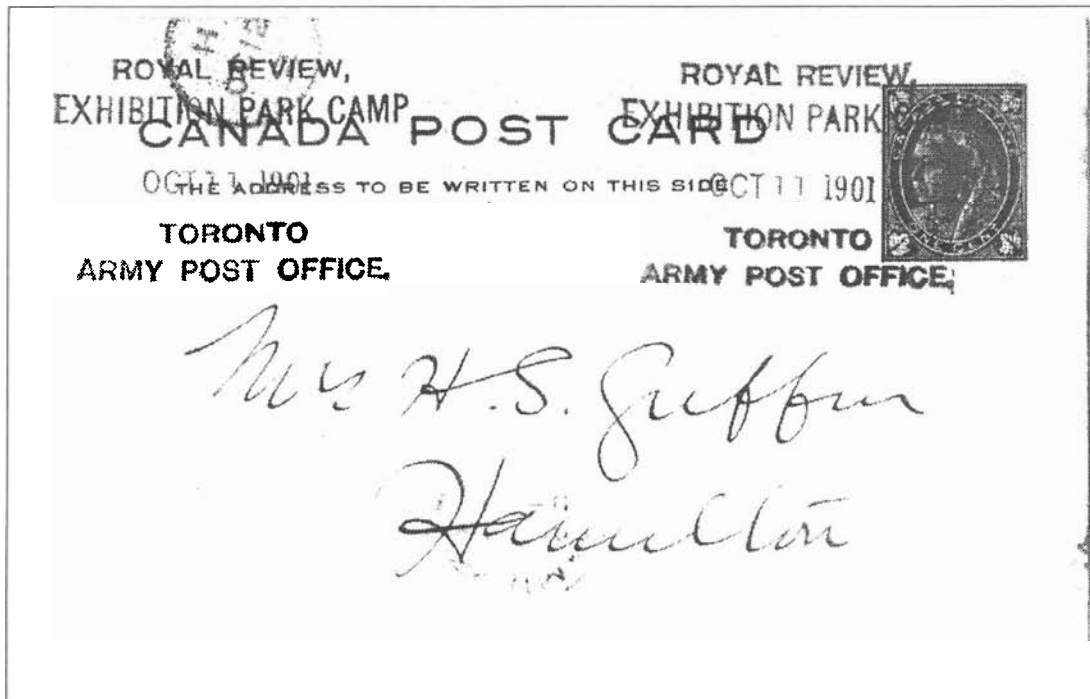 ROYAL REVIEW,
EXHIBITION PARK CAMP
OCT 11 1901
TORONTO
ARMY POST OFFICE.
ROYAL REVIEW,
EXHIBITION PARK
OCT 11 1901
TORONTO
ARMY POST OFFICE.
CANADA POST CARD
THE ADDRESS TO BE WRITTEN ON THIS SIDE
ONE CENT
Mrs H.S. Griffin
Hamilton